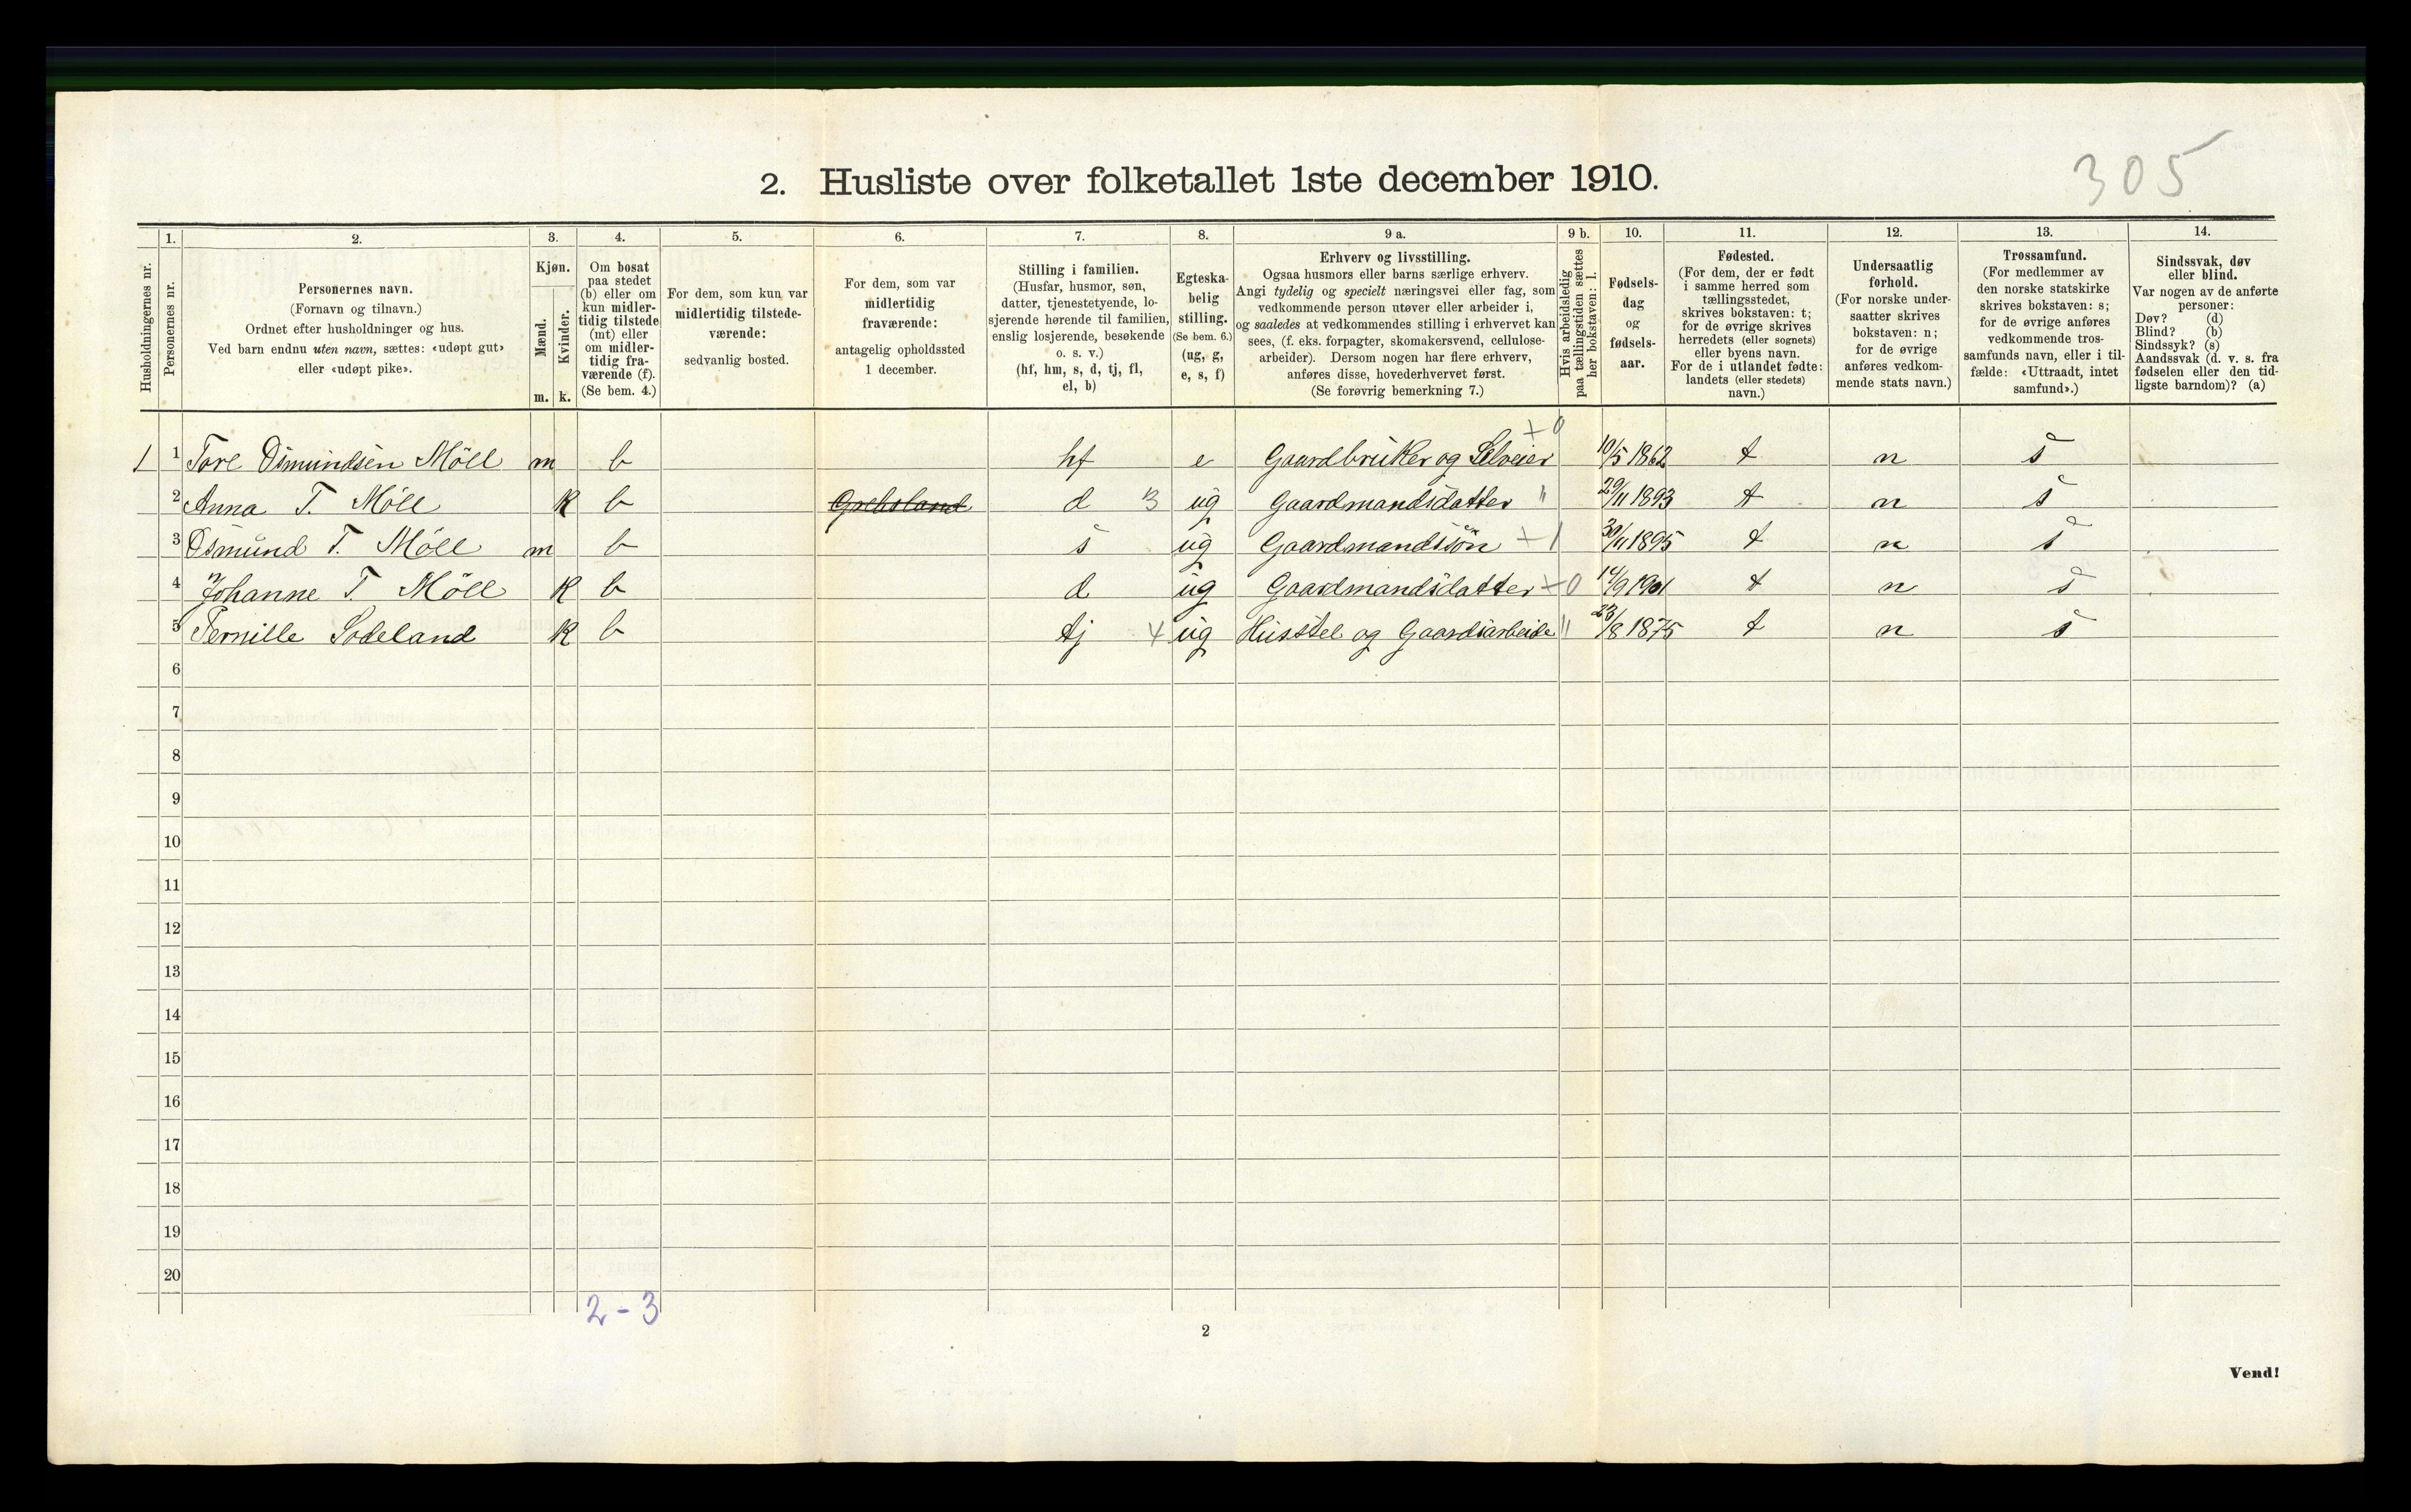 305
2. Husliste over folketallet 1ste december 1910.
Husholdningernes nr.
1.
Personernes nr.
2.
Personernes navn.
(Fornavn og tilnavn.)
Ordnet efter husholdninger og hus.
Ved barn endnu uten navn, sættes: «udøpt gut»
eller «udøpt pike».
3.
Kjøn.
Mænd.
Kvinder.
m. k.
4.
Om bosat
paa stedet
(b) eller om
kun midler-
tidig tilstede
(mt) eller
om midler-
tidig fra-
værende (f).
(Se bem. 4.)
5.
For dem, som kun var
midlertidig tilstede-
værende:
sedvanlig bosted.
6.
For dem, som var
midlertidig
fraværende:
antagelig opholdssted
1 december.
7.
Stilling i familien.
(Husfar, husmor, søn,
datter, tjenestetyende, lo-
sjerende hørende til familien,
enslig losjerende, besøkende
o. s. v.)
(hf, hm, s, d, tj, fl,
el, b)
8.
Egteska-
belig
stilling.
(Se bem. 6.)
(ug, g,
e, s, f)
9 a.
Erhverv og livsstilling.
Ogsaa husmors eller barns særlige erhverv.
Angi tydelig og specielt næringsvei eller fag, som
vedkommende person utøver eller arbeider i,
og saaledes at vedkommendes stilling i erhvervet kan
sees, (f. eks. forpagter, skomakersvend, cellulose-
arbeider). Dersom nogen har flere erhverv,
anføres disse, hovederhvervet først.
(Se forøvrig bemerkning 7.)
9 b.
Hvis arbeidsledig
paa tællingstiden sættes
her bokstaven: l.
10.
Fødsels-
dag
og
fødsels-
aar.
11.
Fødested.
(For dem, der er født
i samme herred som
tællingsstedet,
skrives bokstaven: t;
for de øvrige skrives
herredets (eller sognets)
eller byens navn.
For de i utlandet fødte:
landets (eller stedets)
navn.)
12.
Undersaatlig
forhold.
(For norske under-
saatter skrives
bokstaven: n;
for de øvrige
anføres vedkom-
mende stats navn.)
13.
Trossamfund.
(For medlemmer av
den norske statskirke
skrives bokstaven: s;
for de øvrige anføres
vedkommende tros-
samfunds navn, eller i til-
fælde: «Uttraadt, intet
samfund».)
14.
Sindssvak, døv
eller blind.
Var nogen av de anførte
personer:
Døv? (d)
Blind? (b)
Sindssyk? (s)
Aandssvak (d. v. s. fra
fødselen eller den tid-
ligste barndom)? (a)
+0
1 1 Tore Osmundsen Möll m b hf e Gaardbruker og Selveier 10/5 1862 t n s
2 Anna T. Möll k b d 3 ug Gaardmandsdatter " 29/11 1893 t n s
3 Osmund T. Möll m b s ug Gaardmandssön +1 30/11 1895 t n s
4 Johanne T. Möll k b d ug Gaardmandsdatter +0 14/9 1901 t n s
5 Pernille Sodeland k b tj 4 ug Husstel og Gaardsarbeide " 23/8 1875 t n s
6
7
8
9
10
11
12
13
14
15
16
17
18
19
20
2-3
2
Vend!